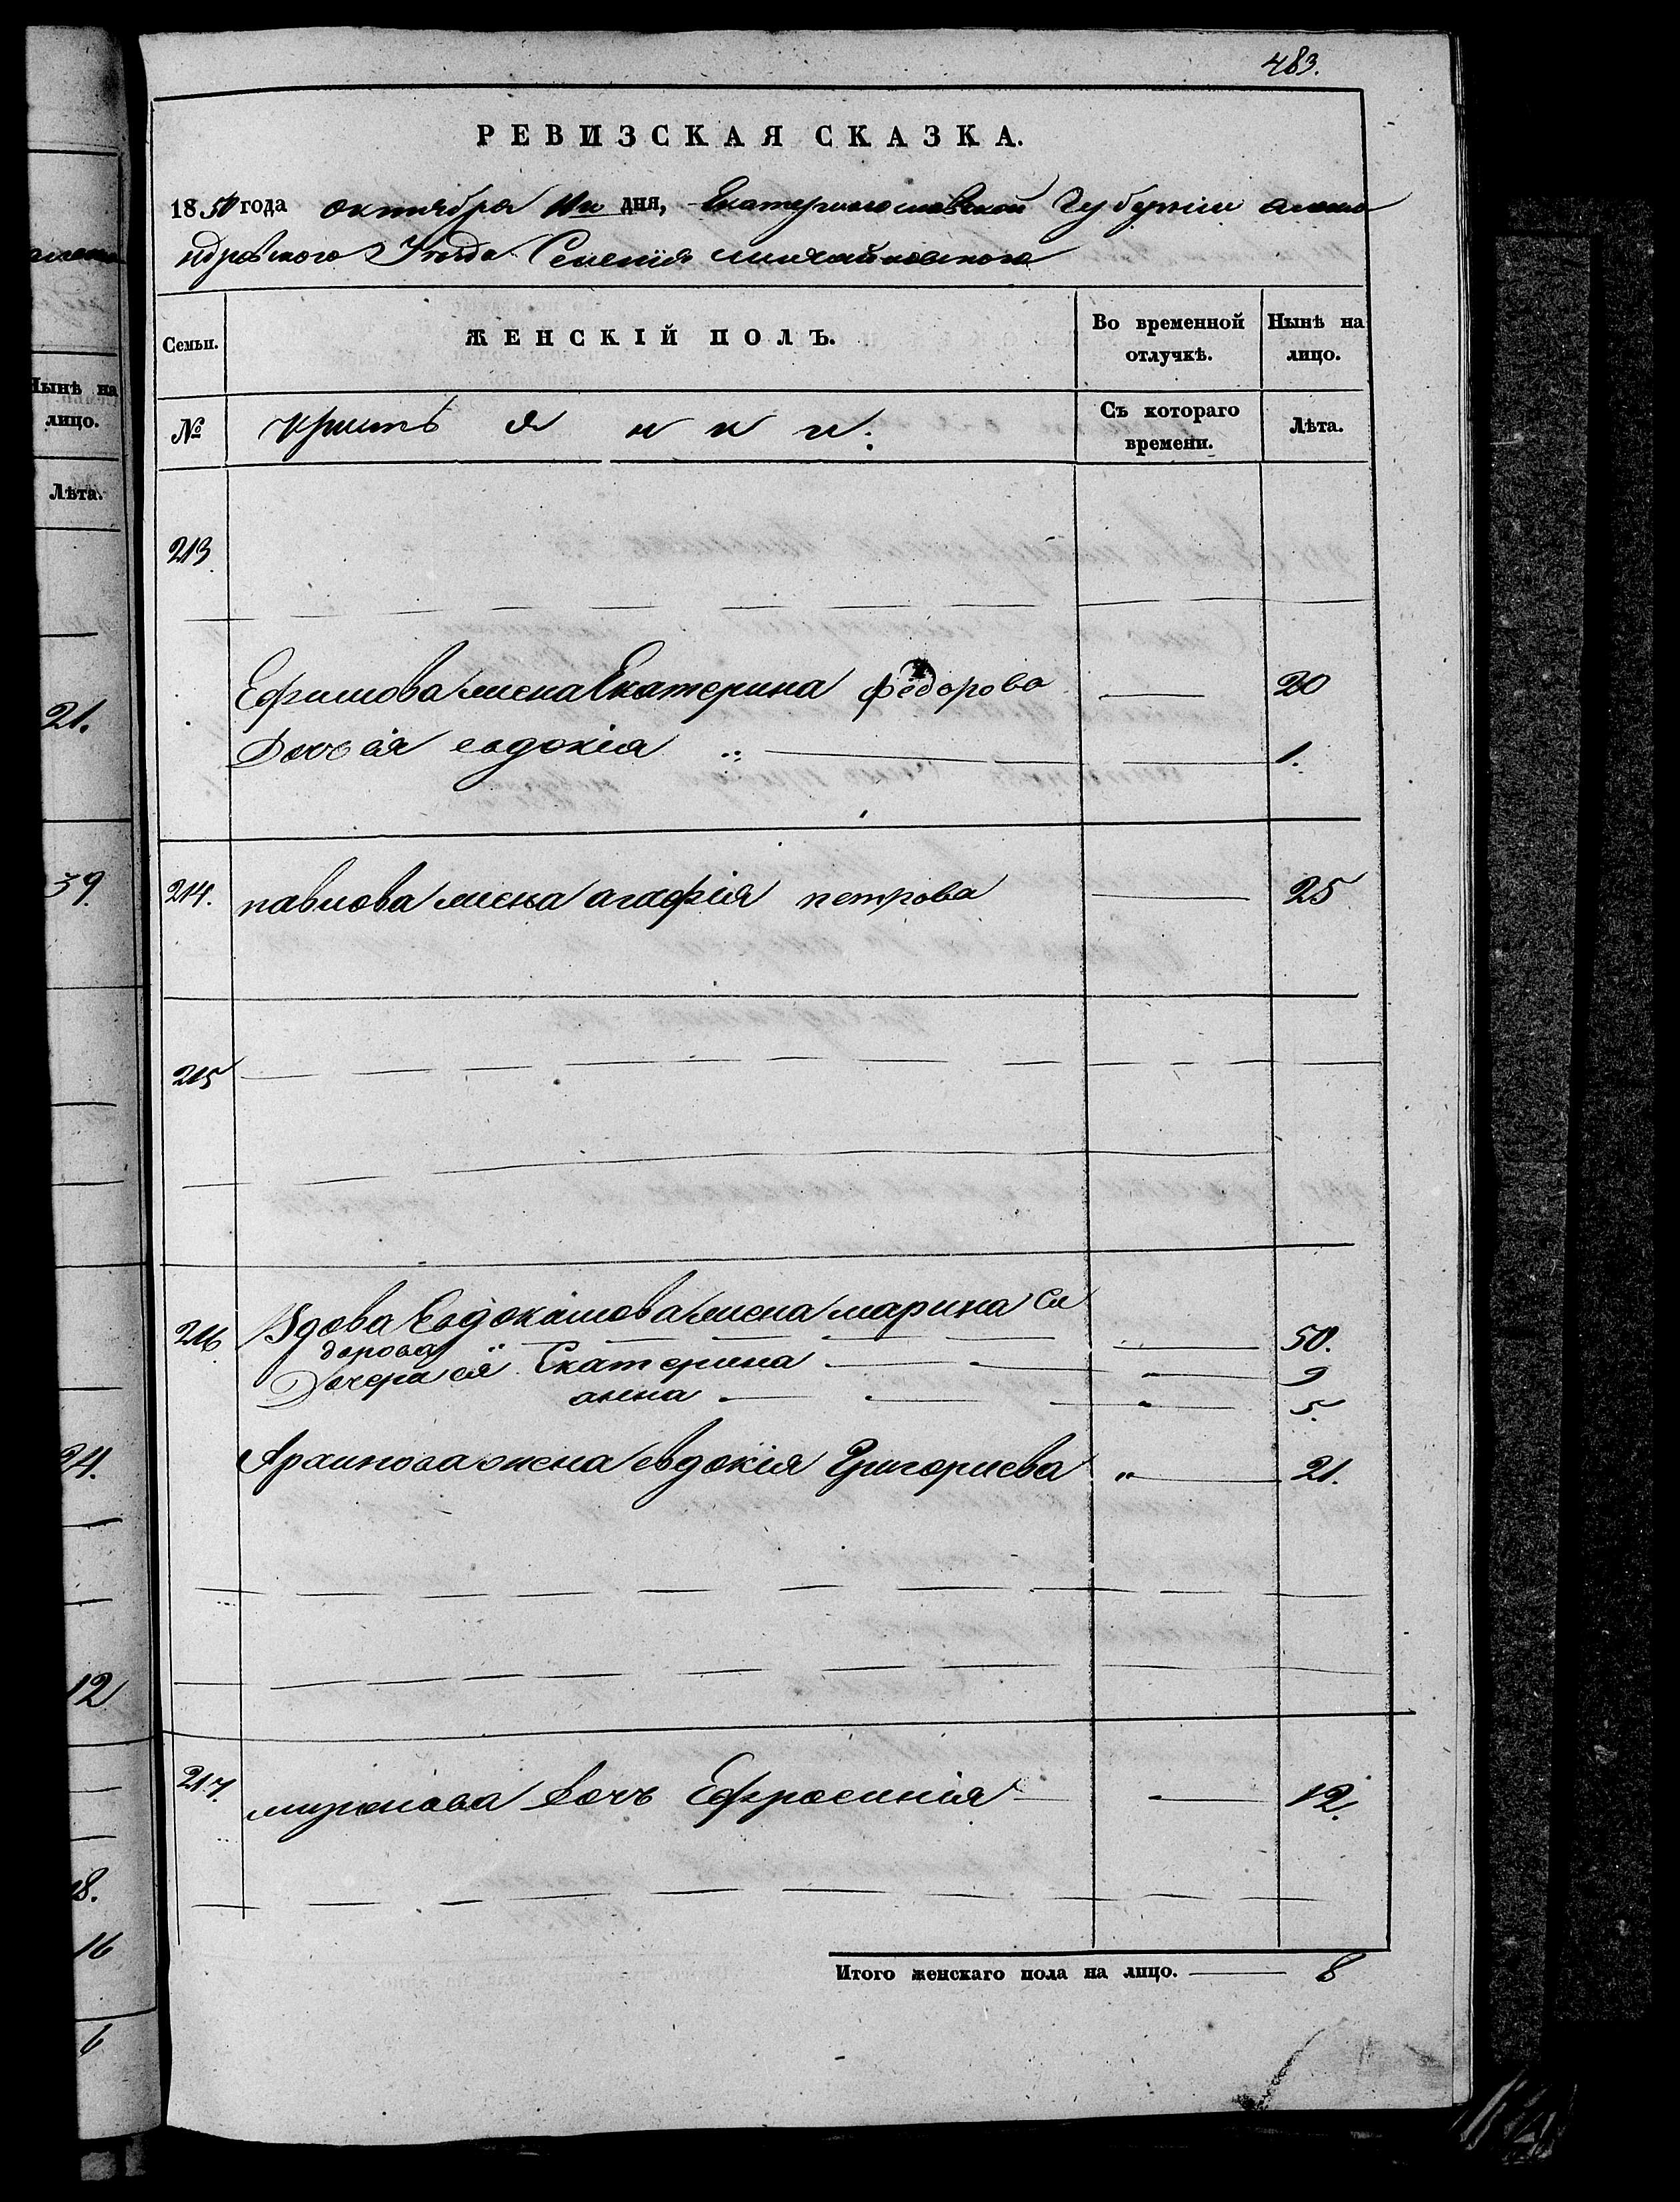 483.
РЕВИЗСКАЯ СКАЗКА.
1850 года октября дня, Екатеринославской Губерніи алекса
ндровского Уезда Селенія михайловского
Семьи.
ЖЕНСКІЙ ПОЛЪ.
Во временной отлучкѣ.
Нынѣ на лицо.
№
Съ котораго времени.
Лѣта.
213
Ефимова жена Екатерина федорова 20
Дочь ея евдокія 1.
214. павлова жена агафія петрова 25
215
216 Вдова Евдокимова жена марина Си
дорова 50.
Дочера ея Екатерина 9
анна 5.
Архипова жена евдокія Григориева 21.
217. миронова Дочь Ефросинія 12.
Итого женскаго пола на лицо. 8
Нынѣ на
лицо.
Лѣта.
21.
39.
24.
12
18.
16
6